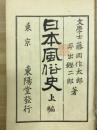 文學士 藤岡作太郎
平出鏗二郎 著
日本風俗史 上編
東京 東陽堂發行